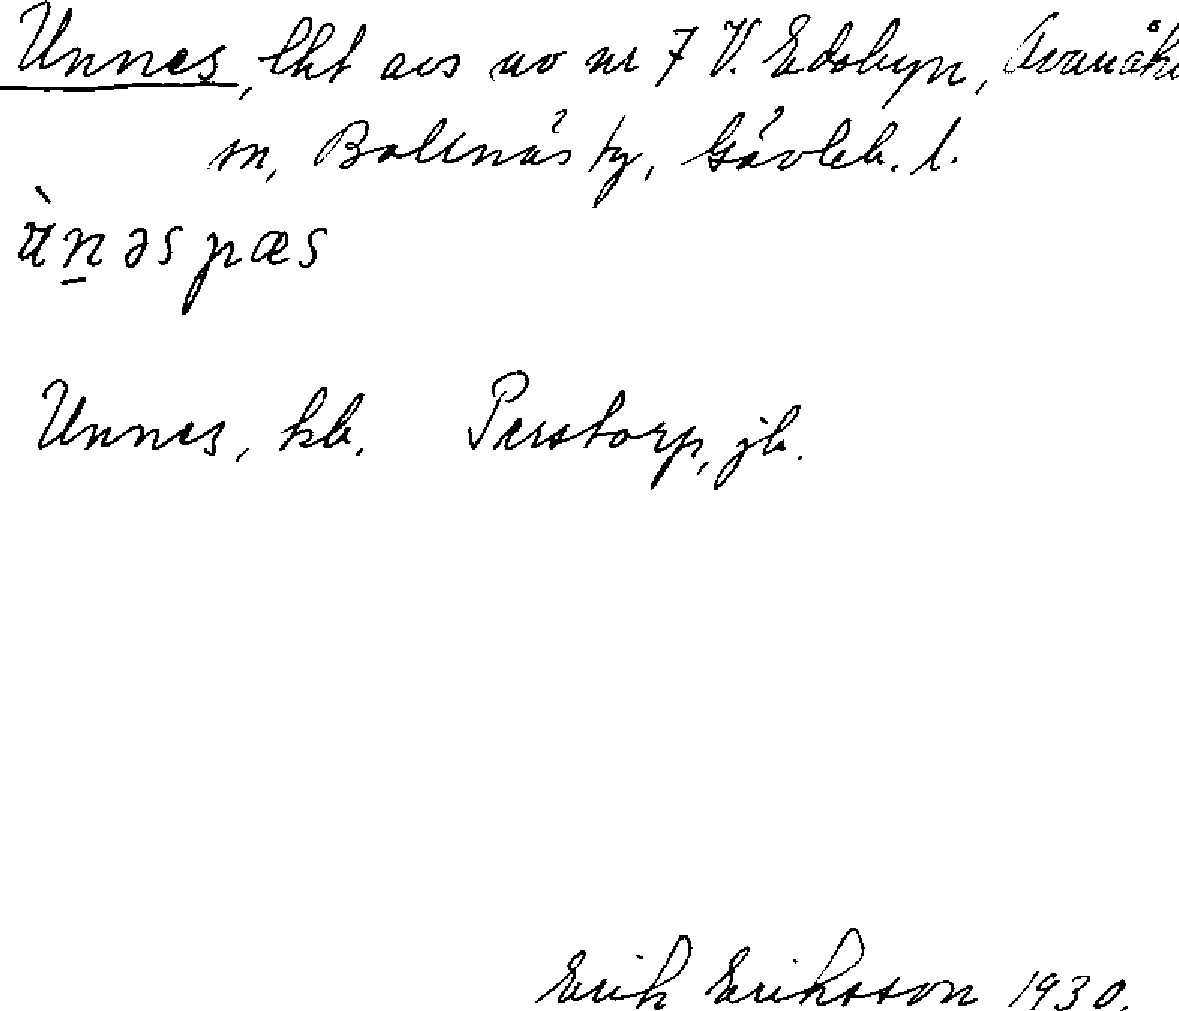 Unnes, lht avs av nr 7 V. Edsbyn, Ovanåk
sn, Bollnäs tg, Gävleb. l.
ùnəs pæs
Unnes, kb. Perstorp, jb.
Erik Eriksson 1930.